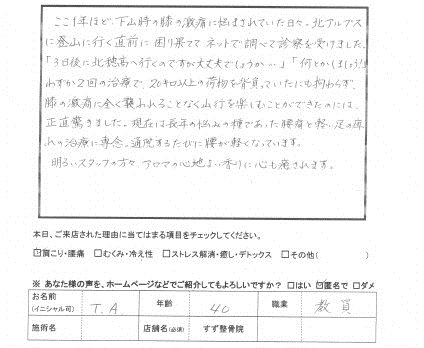 ここ1年ほど、下山時の膝の激痛に悩まされていた日々。北アルプス
に登山に行く直前に困り果てて ネットで調べて診察を受けました。
「3日後に北穂高へ行くのですが大丈夫でしょうか…」「何とかしましょう!」
わずか2回の治療で、20キロ以上の荷物を背負っていたにも拘わらず、
膝の激痛に全く襲われることなく山行を楽しむことができたのには、
正直驚きました。現在は長年の悩みの種であった腰痛と軽い足の痺
れの治療に専念。通院するたびに腰が軽くなっています。
明るいスタッフの方々、アロマの心地よい香りに心も癒されます。
本日、ご来店された理由に当てはまる項目をチェックしてください。
☑肩こり・腰痛 □むくみ・冷え性 □ストレス解消・癒し・デトックス □その他( )
※ あなた様の声を、ホームページなどでご紹介してもよろしいですか? □はい ☑匿名で □ダメ
お名前 (イニシャル可) T.A. 年齢 40 職業 教員
施術名 店舗名(必須) すず整骨院